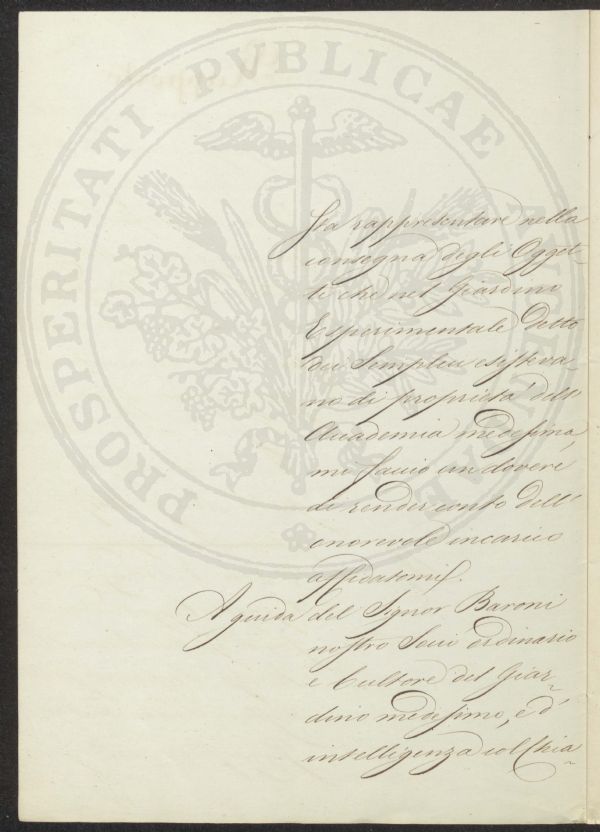 PROSPERITATI PVBLICAE AVGENDAE
sta rappresentare nella
consegna degli Ogget-
ti che nel Giardino
Esperimentale detto
dei Semplici esisteva-
no di proprietà dell'
Accademia medesima,
mi faccio un dovere
di render conto dell'
onorevole incarico
affidatomi.
A guida del Signor Baroni
nostro Socio ordinario
e Cultore del Giar-
dino medesimo, e d'
intelligenza col Chia-